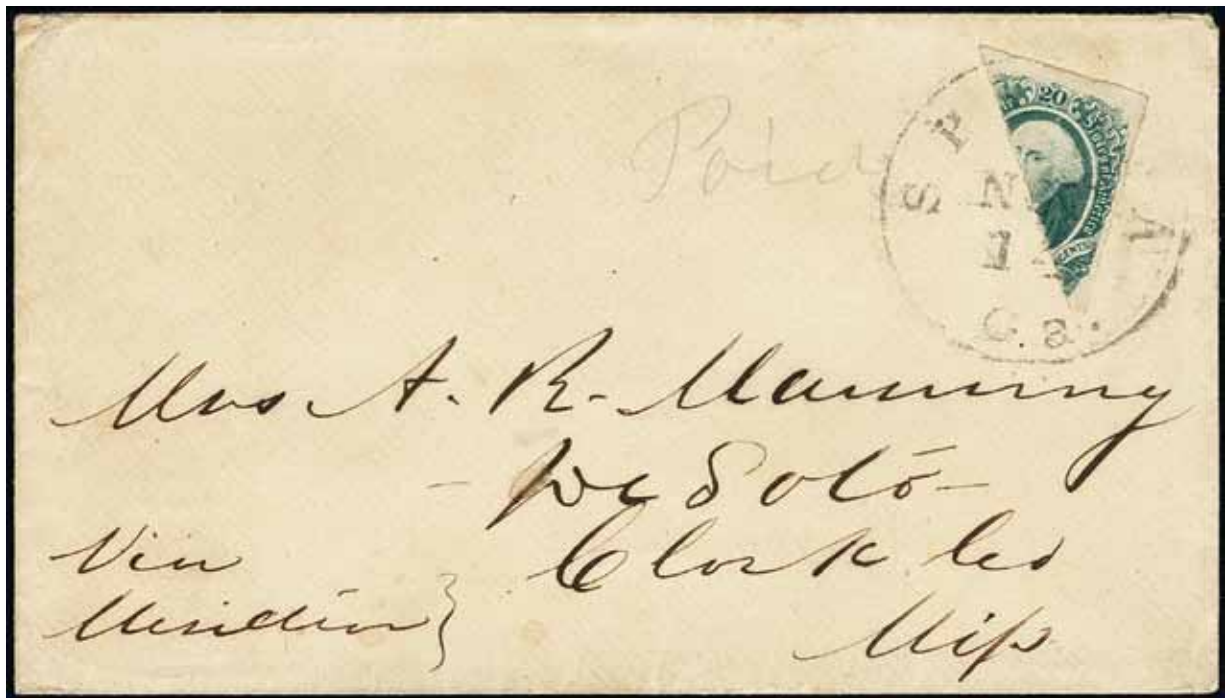 20
Paid
S P A
N
1
Ga.
Mrs A. R. Manning
- De Soto -
Clark Co
Miss
Via
Meridian }